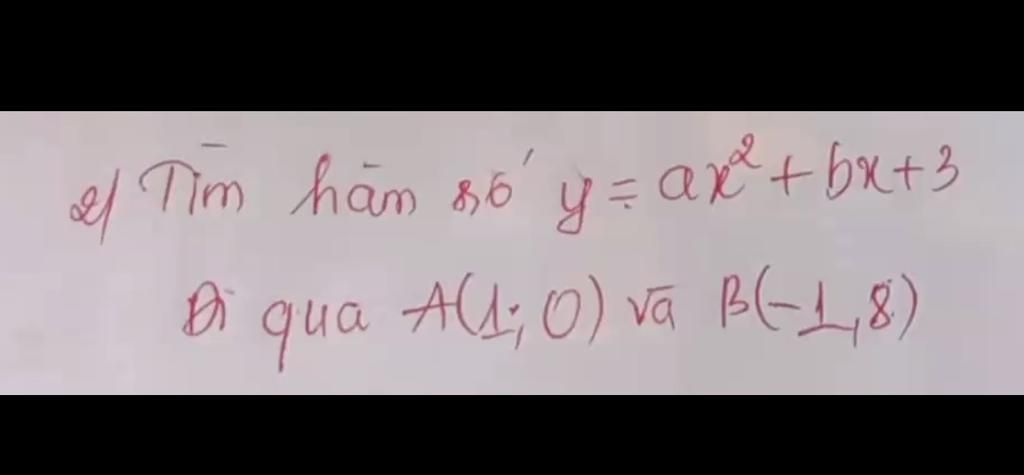 2/ Tìm hàm số y = ax² + bx + 3
Đi qua A(1; 0) và B(-1, 8)